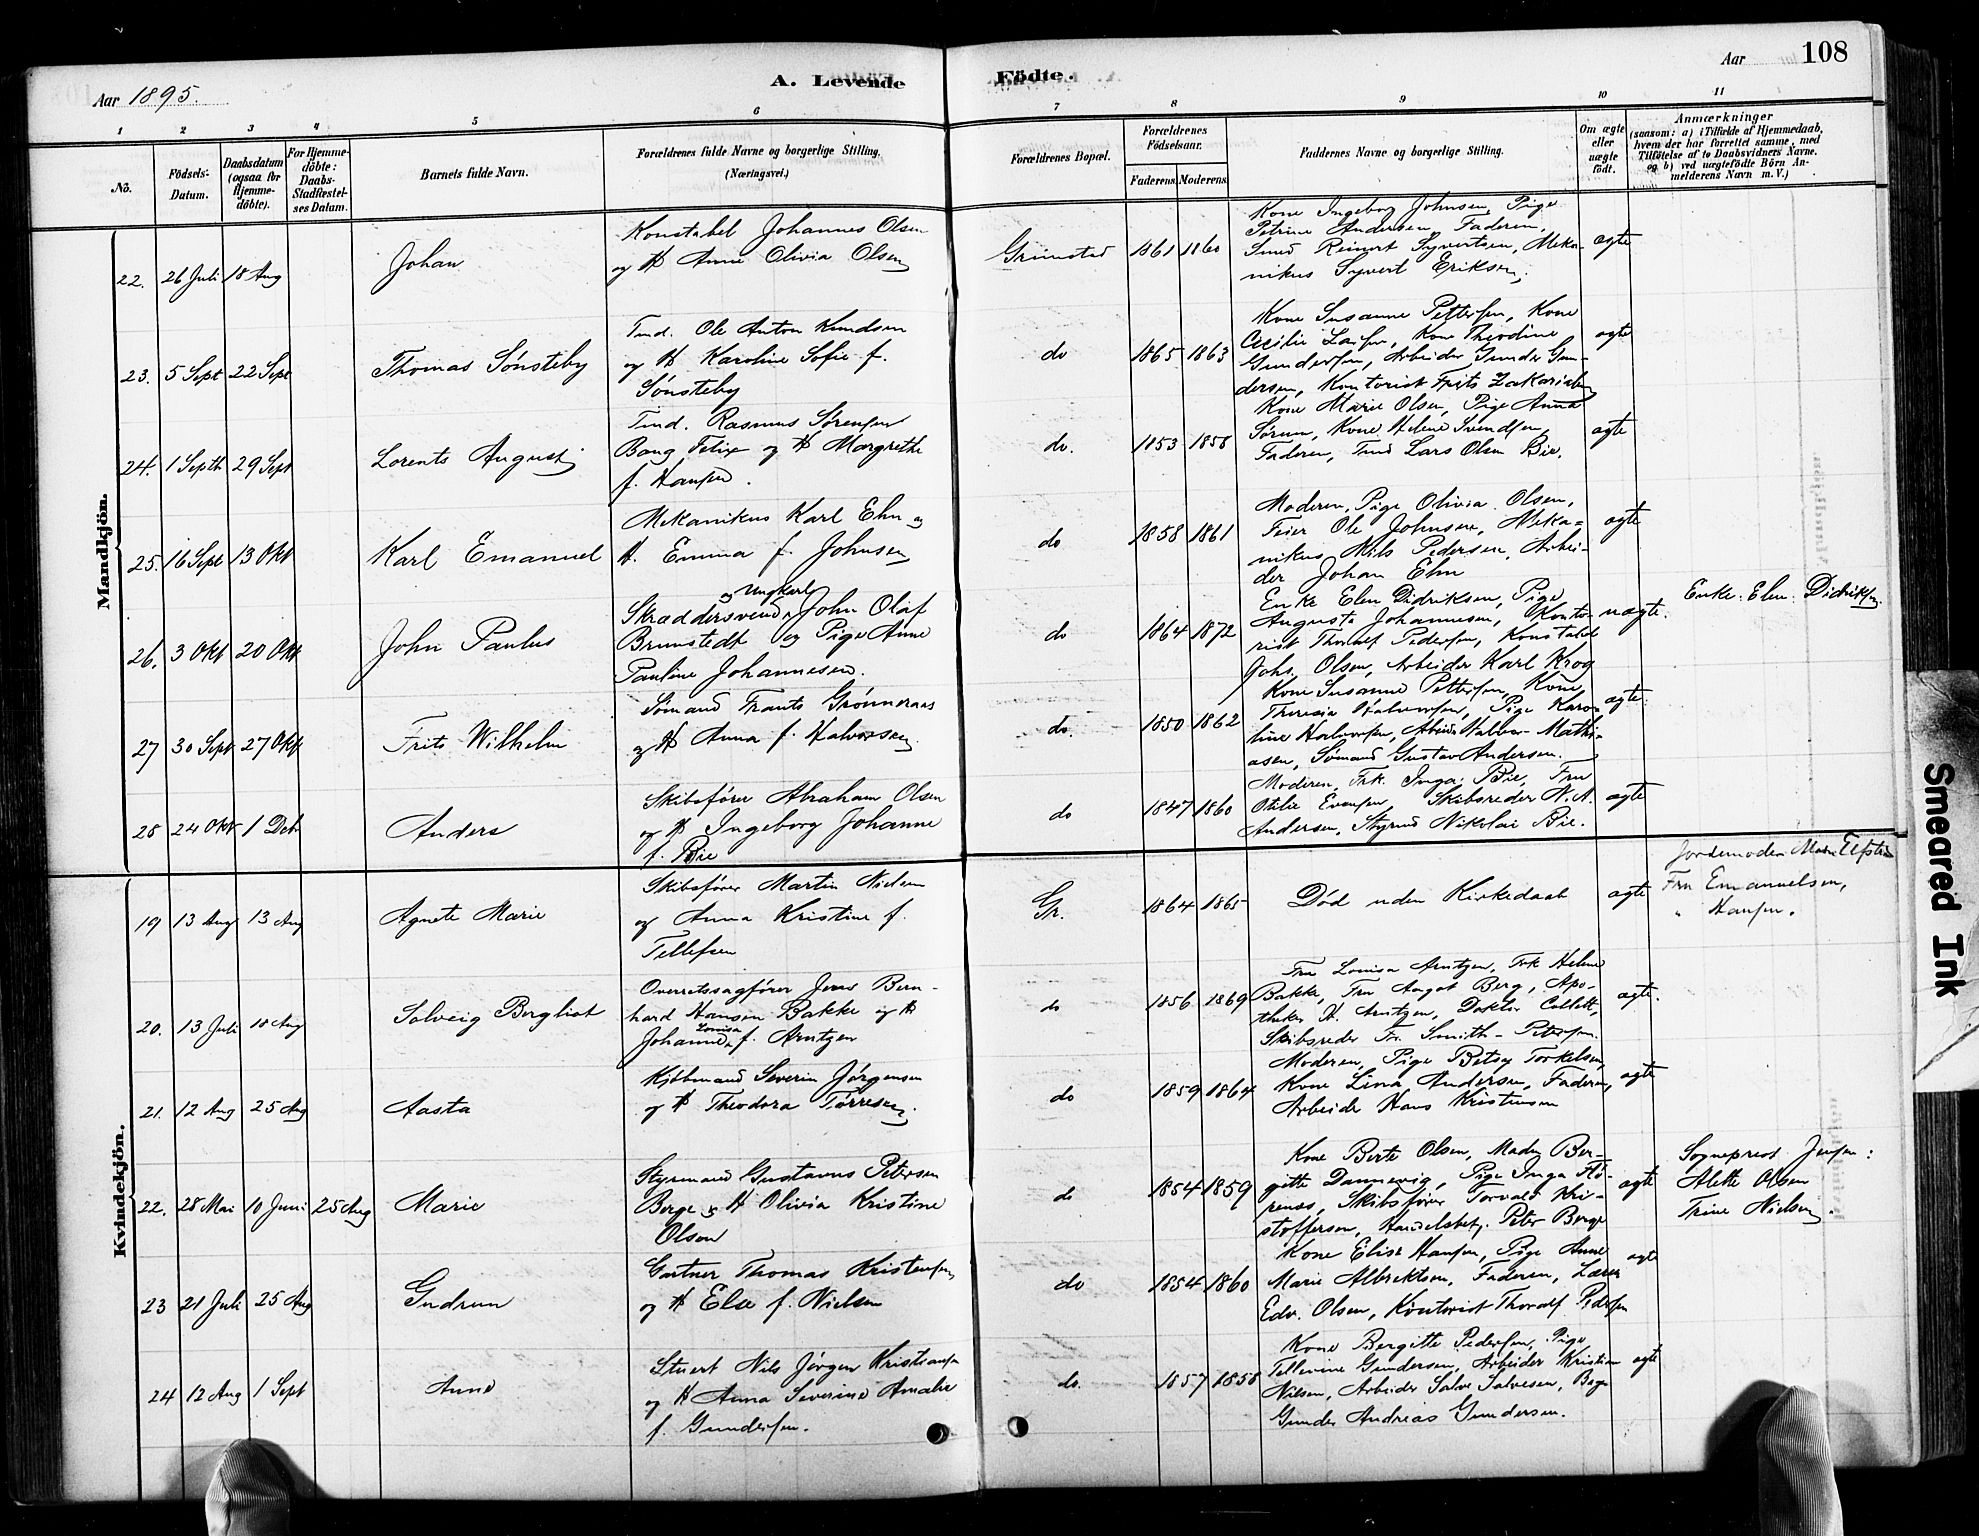 Aar 1895.
A. Levende
Födte.
Aar
108
1 2 3 4 5 6 7 8 9 10 11
No.
Födsels-Datum.
Daabsdatum (ogsaa for Hjemme-döbte).
For Hjemme-döbte: Daabs-Stadfæstel-ses Datum.
Barnets fulde Navn.
Forældrenes fulde Navne og borgerlige Stilling. (Næringsvei.)
Forældrenes Bopæl.
Forældrenes Födselsaar.
Faderens. Moderens.
Faddernes Navne og borgerlige Stilling.
Om ægte eller uægte födt.
Anmærkninger
(saasom: a) i Tilfælde af Hjemmedaab, hvem der har forrettet samme, med Tilföielse af to Daabsvidners Navne. og b) ved uægtefödte Börn An-melderens Navn m. V.)
Mandkjön.
22. 26 Juli 18 Aug
Johan
Konstabel Johannes Olsen
og H Anne Olivia Olsen
Grimstad 1861 1860
Kone Ingeborg Johnsen, Pige
Petrine Andersen, Faderen,
Smed Reinert Syvertsen, Meka-
nikus Syvert Eriksen.
ægte
23. 5 Sept 22 Sept
Thomas Sønsteby
Tind. Ole Anton Knudsen
og H Karoline Sofie f.
Sønsteby
do 1865 1863
Kone Susanne Pettersen, Kone
Cecilie Larsen, Kone Theodine
Gundersen, Arbeider Gunder Gun-
dersen, Kontorist Frits Zakariasen
ægte
24. 1 Septb 29 Sept
Lorents August
Tind. Rasmus Sørensen
Bang Felix og H Margrethe
f. Hansen.
do. 1853 1858
Kone Marie Olsen, Pige Anna
Sørum, Kone Helene Svendsen,
Faderen, Tind Lars Olsen Bie.
ægte
25. 16 Sept 13 Okt
Karl Emanuel
Mekanikus Karl Ehn og
H. Emma f. Johnsen
do 1858 1861
Moderen, Pige Olivia Olsen,
Feier Ole Johnsen, Meka-
nikus Nils Pedersen, Arbei-
der Johan Ehn
ægte
26. 3 Okt 20 Okt
John Paulus
og Ungkarl
Skræddersvend John Olaf
Brunstedt og Pige Anne
Pauline Johannesen.
do 1864 1872
Enke Elen Didriksen, Pige
Augusta Johannesen, Konto-
rist Thoralf Pedersen, Konstabel
Johs. Olsen, Arbeider Karl Krog
uægte.
Enke: Elen Didriksen
27 30 Sept 27 Okt
Frits Wilhelm
Sømand Frants Grønneraas
og H Anna f. Halvorsen.
do. 1850 1862
Kone Susanne Pettersen, Kone
Theresia Halvorsen, Pige Karo-
line Halvorsen, Arbeid. Halvor Mathi-
asen, Sømand Gustav Andersen.
ægte
28 24 Okt 1 Deb
Anders
Skibsfører Abraham Olsen
og H Ingeborg Johanne
f. Bie
do 1847 1860
Moderen, Frk. Inga Bie, Fru
Otilie Evensen, Skibsreder N. A.
Andersen, Styrmd Nikolai Bie.
ægte
Kvindekjön.
19 13 Aug 13 Aug
Agnete Marie
Skibsfører Martin Nielsen
og Anna Kristine f.
Tellefsen
Gr. 1864 1865
Død uden Kirkedaab
ægte
Jordemoder Marie
Fru Emanuelsen,
" Hansen.
20. 13 Juli 18 Aug
Solveig Bergliot
Overretssagfører Jens Bern-
hard Hansen Bakke og H
Johanne Lovisa f. Arntzen
do 1856 1869
Fru Lovisa Arntzen, Frk Helene
Bakke, Fru Aagot Berg, Apo-
theker H. Arntzen, Doktor Collett,
Skibsreder Fr. Smith-Petersen.
ægte.
21. 12 Aug 25 Aug
Aasta
Kjøbmand Severin Jørgensen
og H Theodora Tørresen.
do 1859 1864
Moderen, Pige Betsy Torkelsen,
Kone Lina Andersen, Faderen,
Arbeider Hans Kristensen
ægte
22. 28 Mai 10 Juni 25 Aug
Marie
Styrmand Gustavus Petersen
Berge og H Olivia Kristine
Olsen
do 1854 1859
Kone Berte Olsen, Madm Ber-
gitte Dannevig, Pige Inga Hø-
renæs, Skibsfører Torvald Kri-
stoffersen, Handelsbetj. Peter Berge
ægte
Sogneprest Jensen:
Alette Olsen
Trine Nielsen.
23 21 Juli 25 Aug
Gudrun
Gartner Thomas Kristensen
og H Else f. Nielsen
do 1854 1860
Kone Elise Hansen, Pige Anne
Marie Albrektsen, Faderen, Lærer
Edv. Olsen, Kontorist Thoralf Pedersen
ægte
24 12 Aug 1 Sept
Anna
Stuert Nils Jørgen Kristiansen
og H Anna Severine Amalie
f. Gundersen.
do. 1857 1858
Kone Bergitte Pedersen, Pige
Tellevine Gundersen, Arbeider Kristian
Nilsen, Arbeider Salve Salvesen,
Gunder Andreas Gundersen.
ægte
Smeared Ink